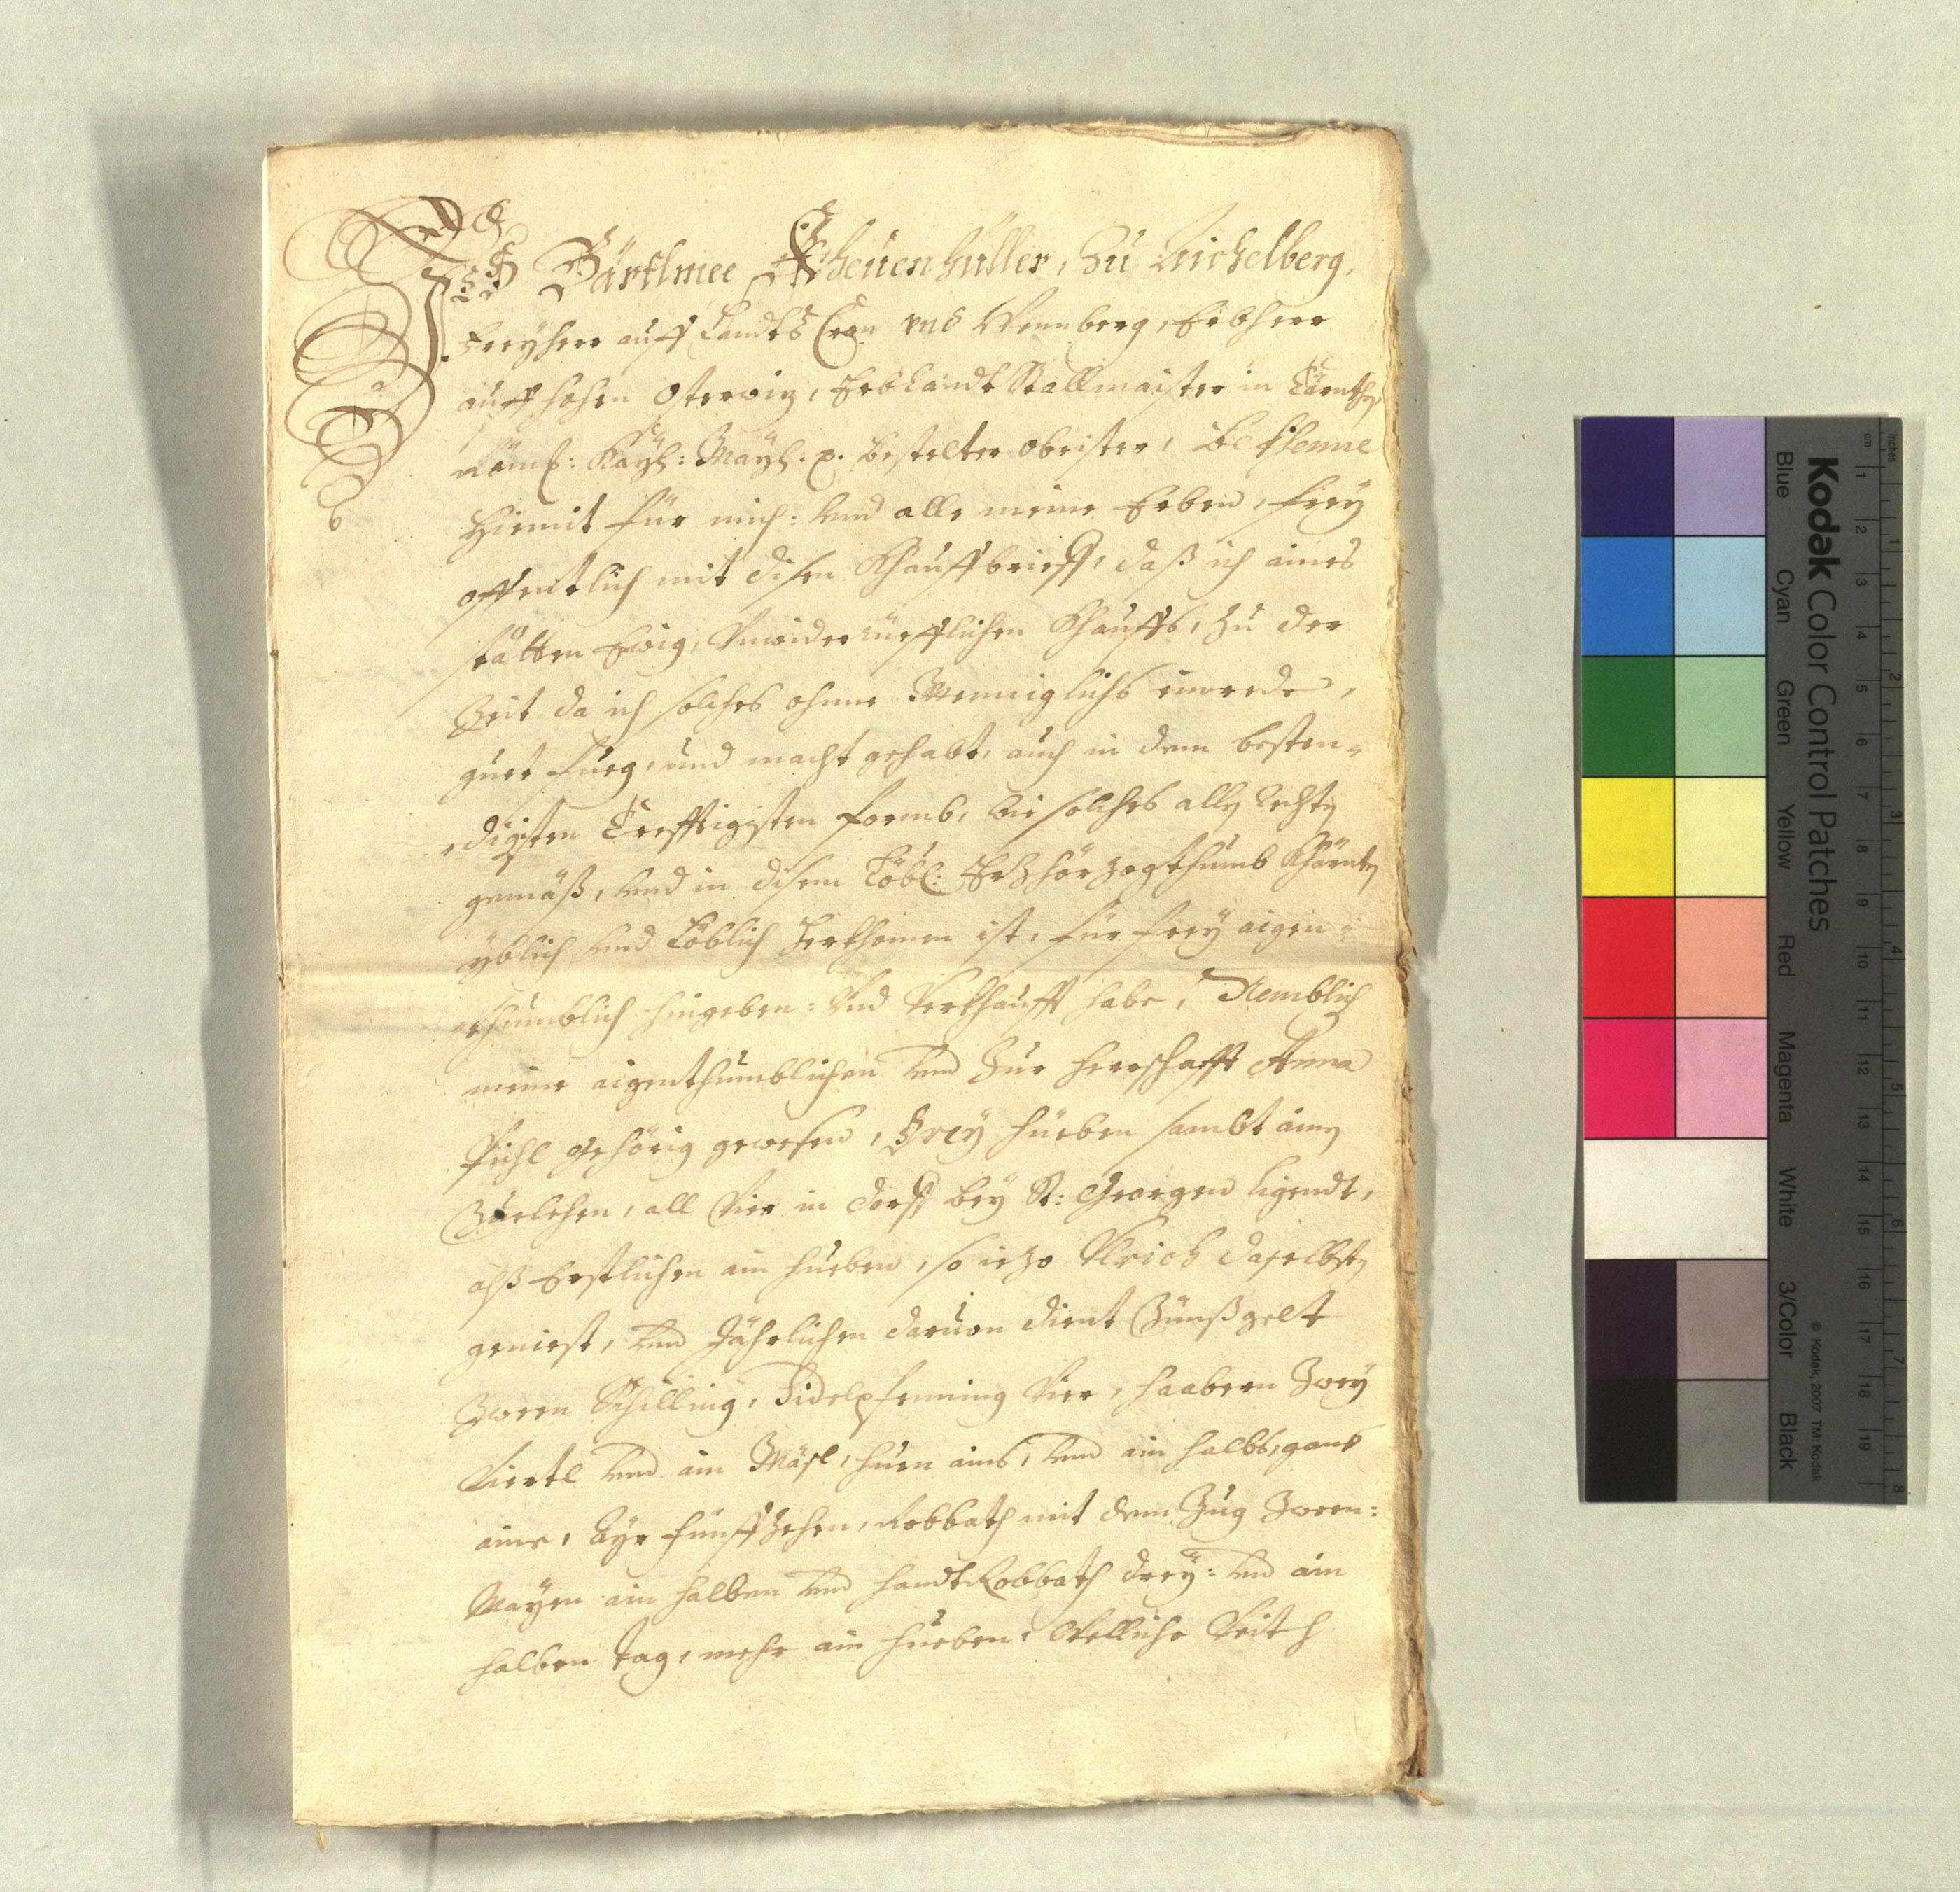 Ich Bärtlmee Kheuenhüller, Zu Aichelberg,
Freyherr auff Landts Cron vnd Wernberg, Erbherr
auff hohen Osterwiz, Erblandt Stallmaister in Cärnthen
Röml: Kayl: Mayl: p. bestelter obrister, Bekhenne
Hiemit für mich: vnd alle meine Erben, frey
offentlich mit disen Khauffbrieff, daß ich aines
stätten Ewig, Vnwiderrüefflichen Khauffs, zu der
Zeit da ich solches ohne Menniglichs einrede,
guet fueg, und macht gehabt, auch in dem besten-
digisten Crefftigisten formb, wie solches allen rechten
gemäß, vnd in disem Löbl: Erzhörzogthumb Khärnten
yblich vnd Löblich Herkhomen ist, für frey aigen-
thumblich hingeben: Vnd Verkhaufft habe, Nemblich
meine aigenthumblichen vnd Zur herrschafft Anna
Pichl gehörig gewesene, Drey hueben sambt ainen
Zuelehen, all Vier in dorff bey St: Georgen ligendt,
alß Erstlichen ain hueben, so iezo Vlrich daselbsten
geniest, vnd Jährlichen daruon dient Zünßgelt
Zween Schilling, Fidelpfenning Vier, haabern Zwey
Viertl vnd ain Mäsl, huen ains, vnd ain halbs, gans
aine, Ayr fünffzehen, Robbath mit dem Zug Zween:
Mayen ain halben vnd handt Robbath drey: vnd ain
halben tag, mehr ain hueben, Welliche Veith